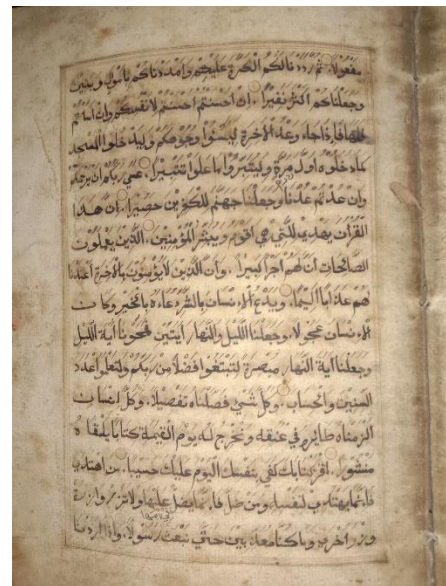 مَفْعُولًا ثُمَّ رَدَدْنَا لَكُمُ الْكَرَّةَ عَلَيْهِمْ وَاَمْدَدْنَاكُمْ بِاَمْوَالٍ وَبَنِينَ
وَجَعَلْنَاكُمْ اَكْثَرَ نَفِيرًا اِنْ اَحْسَنْتُمْ اَحْسَنْتُمْ لِاَنْفُسِكُمْ وَاِنْ اَسَاْتُمْ
فَلَهَا فَاِذَا جَاءَ وَعْدُ الْاٰخِرَةِ لِيَسُوؤُا وُجُوهَكُمْ وَلِيَدْخُلُوا الْمَسْجِدَ
كَمَا دَخَلُوهُ اَوَّلَ مَرَّةٍ وَلِيُتَبِّرُوا مَا عَلَوْا تَتْبِيرًا عَسٰى رَبُّكُمْ اَنْ يَرْحَمَكُمْ
وَاِنْ عُدْتُمْ عُدْنَا وَجَعَلْنَا جَهَنَّمَ لِلْكٰفِرِينَ حَصِيرًا اِنَّ هٰذَا
الْقُرْاٰنَ يَهْدِي لِلَّتِي هِيَ اَقْوَمُ وَيُبَشِّرُ الْمُؤْمِنِينَ الَّذِينَ يَعْمَلُونَ
الصَّالِحَاتِ اَنَّ لَهُمْ اَجْرًا كَبِيرًا وَاَنَّ الَّذِينَ لَا يُؤْمِنُونَ بِالْاٰخِرَةِ اَعْتَدْنَا
لَهُمْ عَذَابًا اَلِيمًا وَيَدْعُ الْاِنْسَانُ بِالشَّرِّ دُعَاءَهُ بِالْخَيْرِ وَكَانَ
الْاِنْسَانُ عَجُولًا وَجَعَلْنَا اللَّيْلَ وَالنَّهَارَ اٰيَتَيْنِ فَمَحَوْنَا اٰيَةَ اللَّيْلِ
وَجَعَلْنَا اٰيَةَ النَّهَارِ مُبْصِرَةً لِتَبْتَغُوا فَضْلًا مِنْ رَبِّكُمْ وَلِتَعْلَمُوا عَدَدَ
السِّنِينَ وَالْحِسَابَ وَكُلَّ شَيْءٍ فَصَّلْنَاهُ تَفْصِيلًا وَكُلَّ اِنْسَانٍ
اَلْزَمْنَاهُ طَائِرَهُ فِي عُنُقِهِ وَنُخْرِجُ لَهُ يَوْمَ الْقِيٰمَةِ كِتَابًا يَلْقَاهُ
مَنْشُورًا اِقْرَأْ كِتَابَكَ كَفٰى بِنَفْسِكَ الْيَوْمَ عَلَيْكَ حَسِيبًا مَنِ اهْتَدٰى
فَاِنَّمَا يَهْتَدِي لِنَفْسِهِ وَمَنْ ضَلَّ فَاِنَّمَا يَضِلُّ عَلَيْهَا وَلَا تَزِرُ وَازِرَةٌ
وِزْرَ اُخْرٰى وَمَا كُنَّا مُعَذِّبِينَ حَتّٰى نَبْعَثَ رَسُولًا وَاِذَا اَرَدْنَا